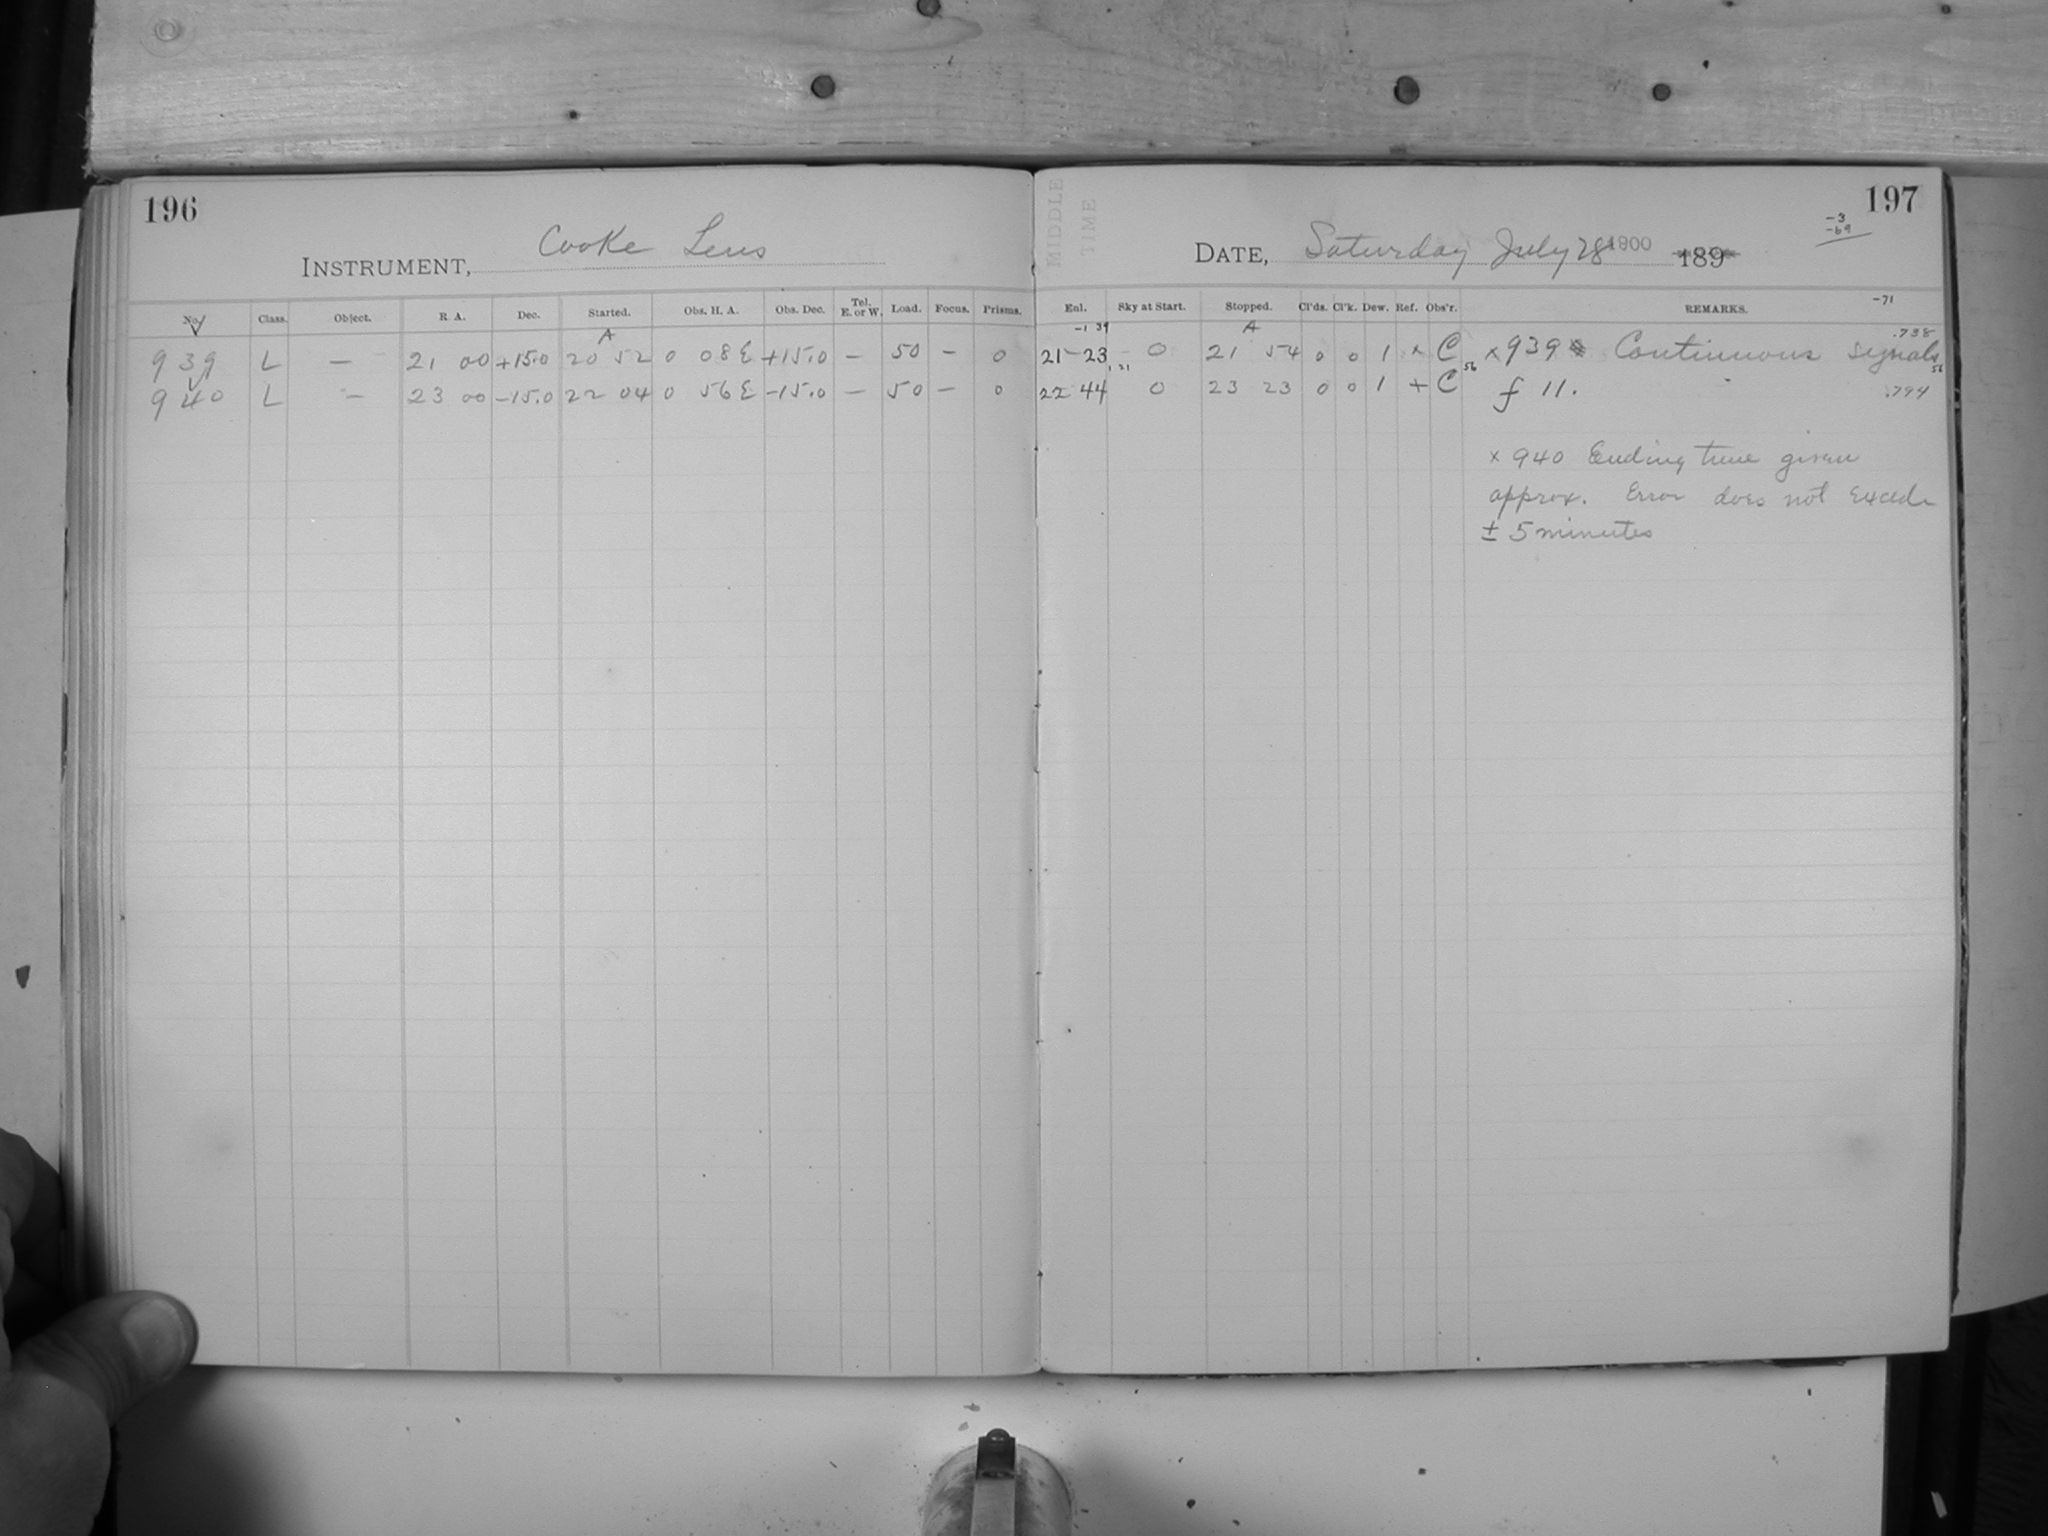 196
INSTRUMENT, Cooke Lens
No. Class. Object. R. A. Dec. Started. Obs. H. A. Obs. Dec. Tel. E. or W. Load. Focus. Prisms.
A
939 L — 21 00 +15.0 20 52 0 08 E +15.0 — 50 — 0
940 L — 23 00 -15.0 22 04 0 56 E -15.0 — 50 — 0
MIDDLE
TIME
197
-3
-69
DATE, Saturday July 28 1900 189
-71
Enl. Sky at Start. Stopped. Cl'ds. Cl'k. Dew. Ref. Obs'r. REMARKS.
-1 39 A .738
21-23 0 21 54 0 0 1 × C × 939 Continuous signals
1.21 56 56
22 44 0 23 23 0 0 1 + C f 11. .794
× 940 Ending time given
approx. Error does not exceed
± 5 minutes